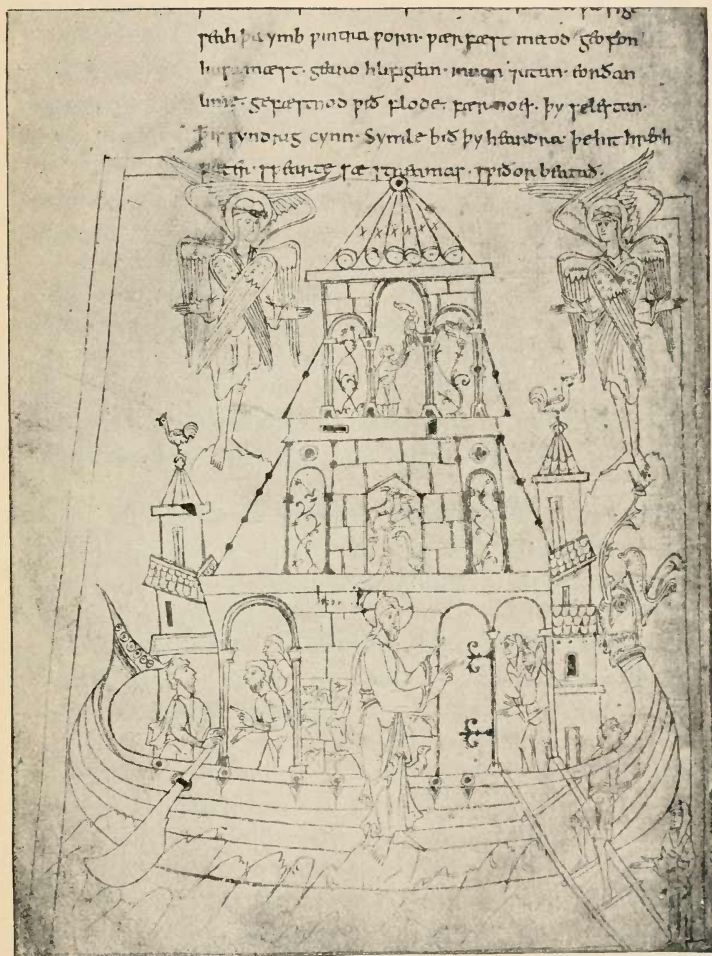 seah þa ymb ƿintra ƿorn· ƿærfæst metod geofon
husa mæst· gearo hlifigean· innan ⁊utan· eorðan
lime· gefæstnod ƿið flode· fær noes· þy selestan·
þæt is syndrig cynn· Symle bið þy heardra þe hit hreoh
ƿæter· sƿearte sæ streamas· sƿiðor beatað·